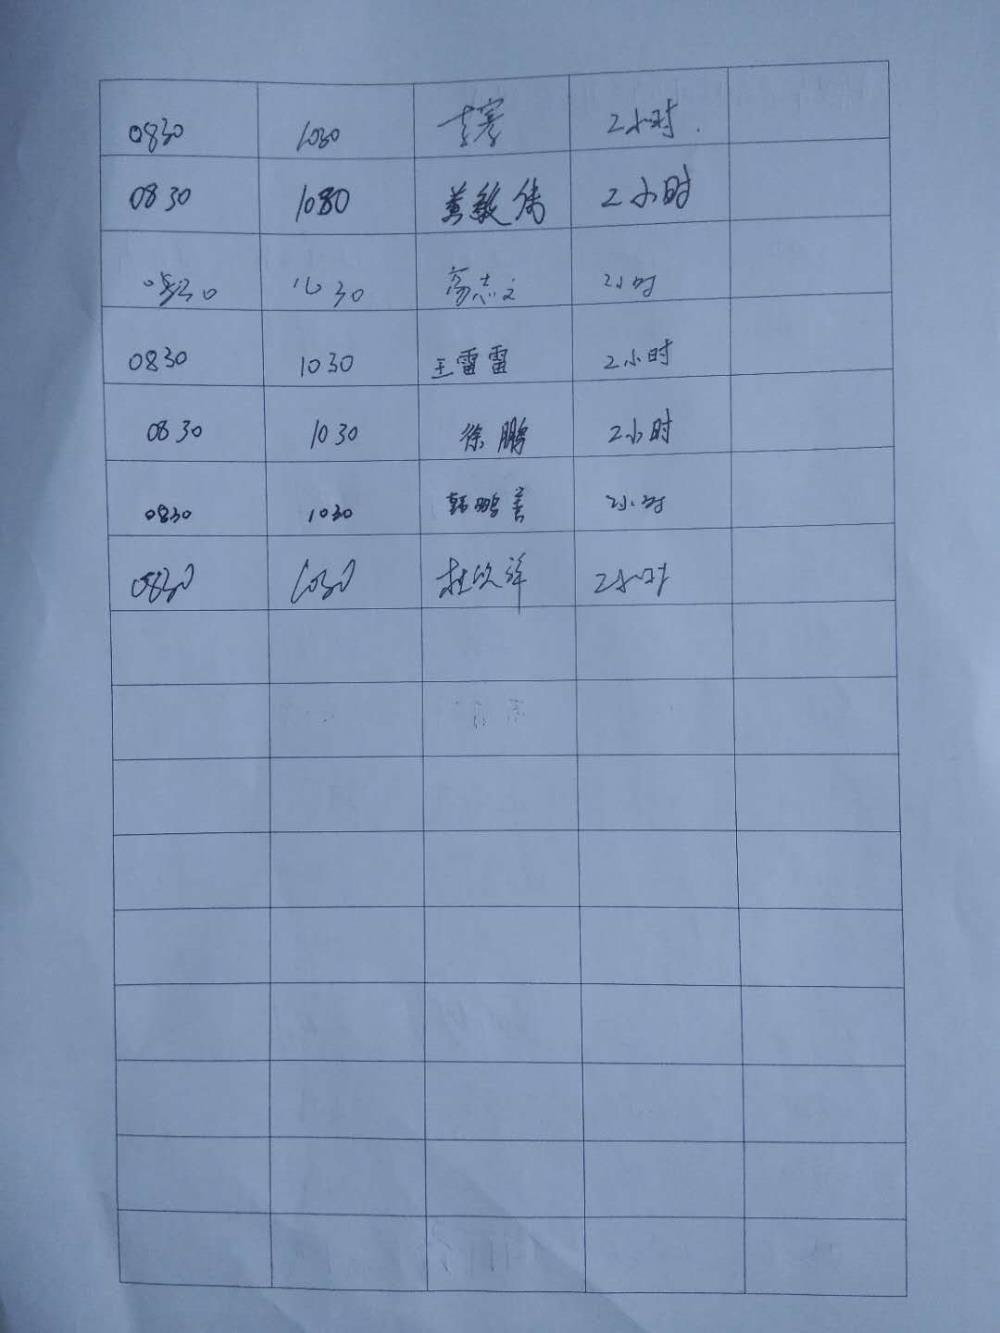 0830 1030 2小时
0830 1030 黄毅伟 2小时
0830 1030 高志文 2小时
0830 1030 王雷雷 2小时
0830 1030 徐鹏 2小时
0830 1030 韩鹏善 2小时
0830 1030 杜欣祥 2小时